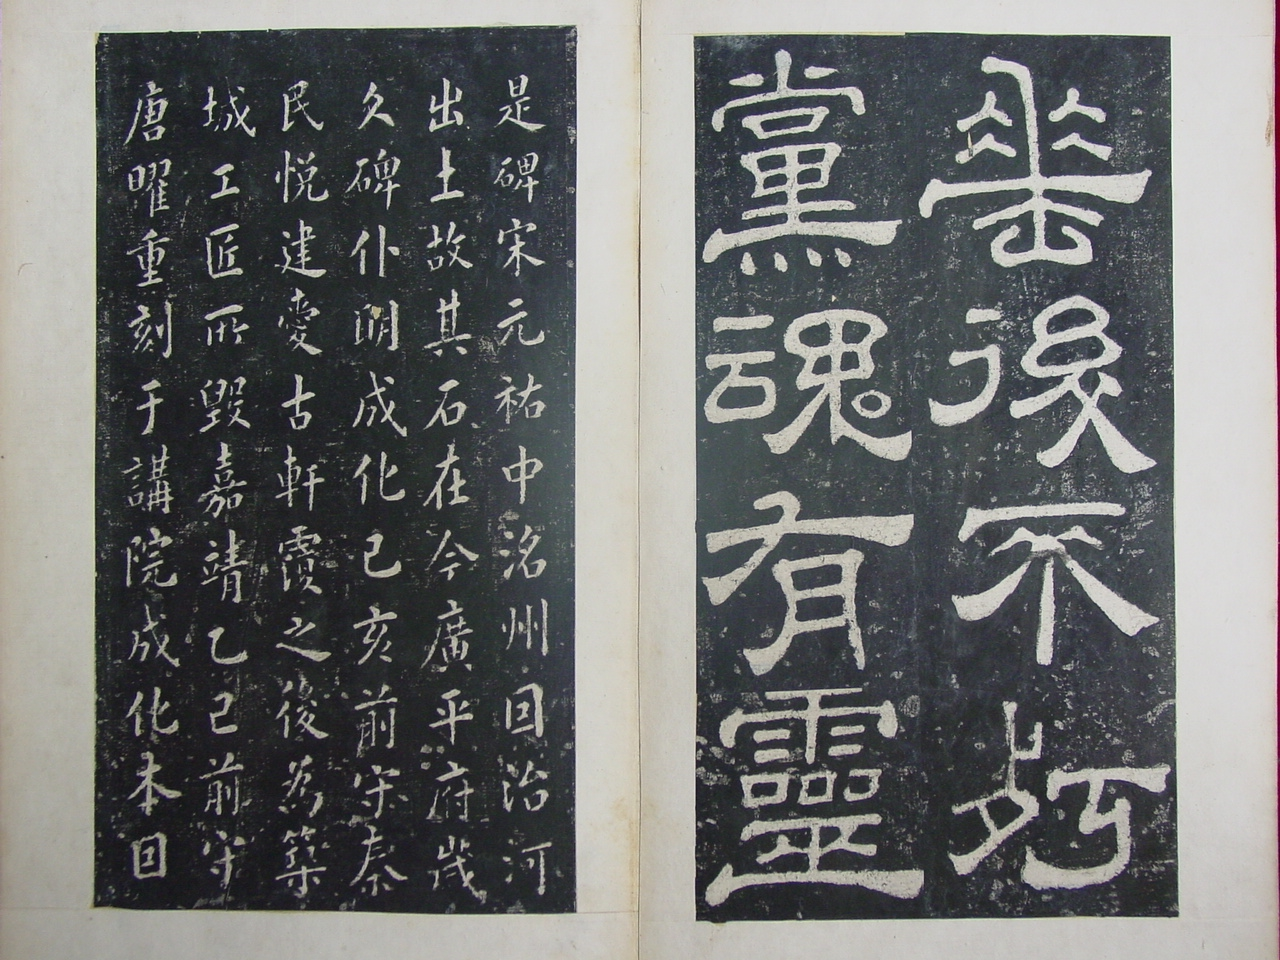 垂後不朽
黨魂有靈
是碑宋元祐中洺州囙治河
出土故其石在今廣平府歲
久碑仆明成化己亥前守秦
民悅建愛古軒覆之後為築
城工匠所毀嘉靖乙巳前守
唐曜重刻于講院成化本囙